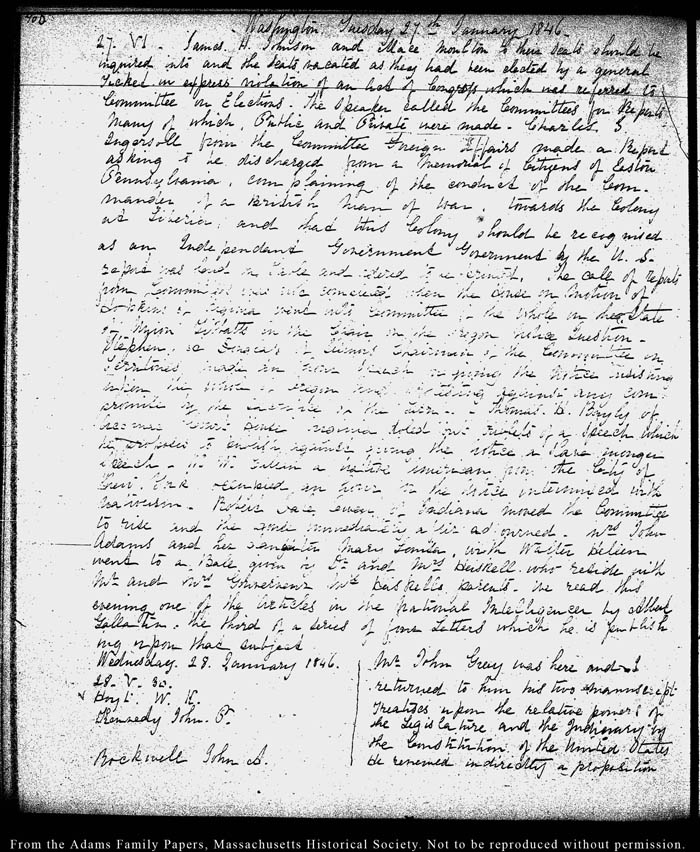 Washington Tuesday 27th January 1846.
27. VI. James H. Johnson and Mace Moulton to their seats should be
inquired into and the seats vacated as they had been elected by a general
Ticket in express violation of an Act of Congress which was referred to
Committee on Elections. The Speaker called the Committees for Reports
many of which, Public and Private were made. Charles J.
Ingersoll from the Committee Foreign Affairs made a Report
asking to be discharged from a Memorial of Citizens of Easton
Pennsylvania, complaining of the conduct of the Com-
mander of a British Man of War towards the Colony
at Liberia, and that this Colony should be recognised
as an Independant Government Government by the U. S.
report was laid on Table and ordered to be printed. The call of reports
from Committees was not concluded when the House on motion of
Hopkins of Virginia went into Committee of the Whole on the State
of Union Tibbatts in the Chair on the Oregon notice Question-
Stephen A Douglas of Illinois Chairman of the Committee on
Territories made an hour speech urging the Notice insisting
upon the whole of Oregon and protesting against any com-
promise by the of the . Thomas H. Bayly of
Court House Virginia doled out of a Speech which
he proposes to against giving the notice a
speech. W. W. a native American from the City of
New York occupied an hour on the Notice intermixed with
Robert Dale Owen, of Indiana moved the Committee
to rise and the House immediately after adjourned. Mrs John
Adams and her daughter Mary Louisa, with Walter Hellen
went to a Ball given by Dr and Mrs Heiskell who reside with
Mr and Mrs Gouverneur Mrs Heiskells parents. We read this
evening one of the Articles in the National Intelligencer by Albert
Gallatin. the third of a series of four Letters which he is publish
ing upon that subject
Wednesday. 28. January 1846.
28. V. 30.
Hoyt. W. K.
Kennedy John P.
Rockwell John A.
Mr John Grey was here and I
returned to him his two manuscript
Treatises upon the relative powers of
the Legislature and the Judiciary by
the Constitution of the United States
He renewed indirectly a proposition
From the Adams Family Papers, Massachusetts Historical Society. Not to be reproduced without permission.